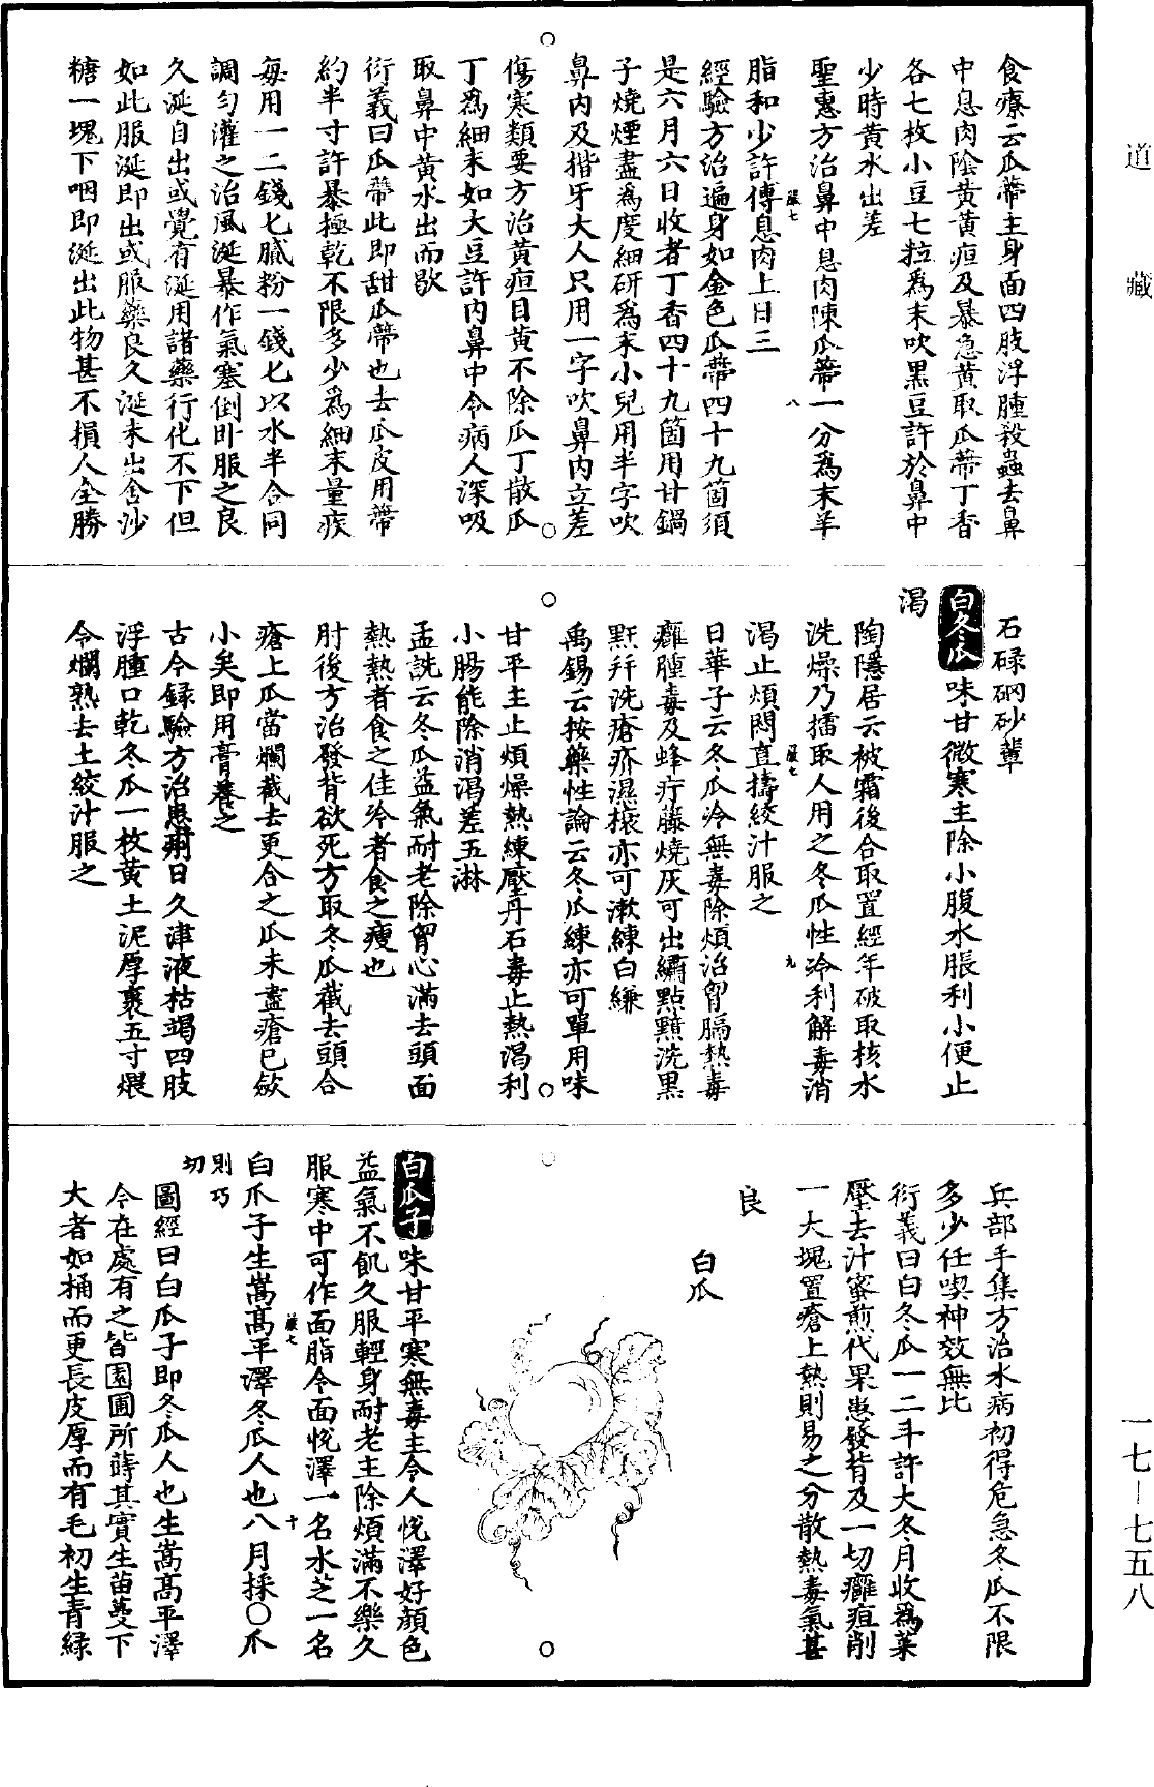 道藏
食療云瓜蔕主身面四肢浮腫殺蟲去鼻
中息肉陰黄黄疸及暴急黄取瓜蔕丁香
各七枚小豆七粒爲末吹黑豆許於鼻中
少時黄水出差
聖惠方治鼻中息肉陳瓜蔕一分爲末羊
脂和少許傅息肉上日三
經驗方治遍身如金色瓜蔕四十九箇須
是六月六日收者丁香四十九箇用甘鍋
子燒煙盡爲度細研爲末小兒用半字吹
鼻内及揩牙大人只用一字吹鼻内立差
傷寒類要方治黄疸目黄不除瓜丁散瓜
丁爲細末如大豆許内鼻中令病人深吸
取鼻中黄水出而歇
衍義曰瓜蔕此即甜瓜蔕也去瓜皮用蔕
約半寸許暴極乾不限多少爲細末量疾
每用一二錢匕膩粉一錢匕以水半合同
調勻灌之治風涎暴作氣塞倒卧服之良
久涎自出或覺有涎用諸藥行化不下但
如此服涎即出或服藥良久涎未出含沙
糖一塊下咽即涎出此物甚不損人全勝
石碌砜砂輩
白冬瓜味甘微寒主除小腹水脹利小便止
渴
陶隱居云被霜後合取置經年破取核水
洗燥乃擂取人用之冬瓜性冷利解毒消
渴止煩悶直擣絞汁服之
日華子云冬瓜冷無毒除煩治胷膈熱毒
癰腫毒及蜂疔藤燒灰可出繡點黵洗黑
䵟并洗瘡疥濕穰亦可漱練白縑
禹錫云按藥性論云冬瓜練亦可單用味
甘平主止煩燥熱練壓丹石毒止熱渴利
小腸能除消渴差五淋
孟詵云冬瓜益氣耐老除胷心滿去頭面
熱熱者食之佳冷者食之瘦也
肘後方治發背欲死方取冬瓜截去頭合
瘡上瓜當爛截去更合之瓜未盡瘡已歛
小矣即用膏養之
古今録驗方治患痢日久津液枯竭四肢
浮腫口乾冬瓜一枚黄土泥厚裹五寸煨
令爛熟去土絞汁服之
兵部手集方治水病初得危急冬瓜不限
多少任喫神效無比
衍義曰白冬瓜一二斗許大冬月收爲菜
壓去汁蜜煎代果患發背及一切癰疽削
一大塊置瘡上熱則易之分散熱毒氣甚
良
白瓜
白瓜子味甘平寒無毒主令人悦澤好顔色
益氣不飢久服輕身耐老主除煩滿不樂久
服寒中可作面脂令面悦澤一名水芝一名
白爪子生嵩高平澤冬瓜人也八月採〇爪
則巧
切
圖經曰白瓜子即冬瓜人也生嵩高平澤
今在處有之皆園圃所蒔其實生苗蔓下
大者如桶而更長皮厚而有毛初生青緑
一七—七五八